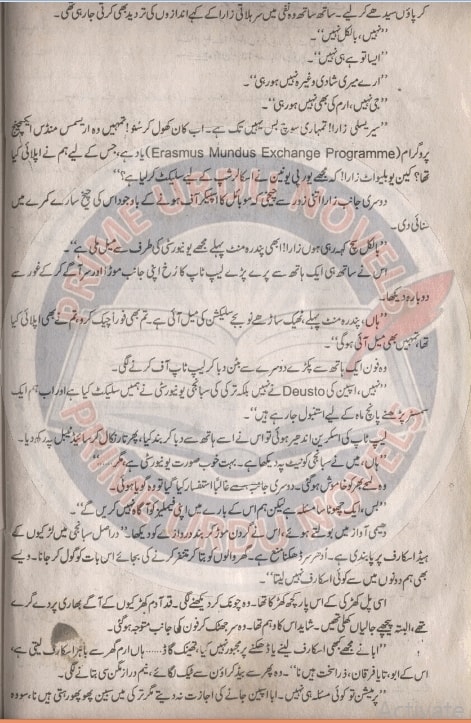 کر پاؤں سیدھے کر لیے۔ ساتھ ساتھ وہ نفی میں سر ہلاتی زارا کے کہے اندازوں کی تردید بھی کرتی جا رہی تھی۔
”نہیں، بالکل نہیں“۔
”ایسا تو ہے ہی نہیں“۔
”ارے میری شادی وغیرہ نہیں ہو رہی“۔
”جی نہیں، ارم کی بھی نہیں ہو رہی“۔
”سیریسلی زارا! تمہاری سوچ بس یہیں تک ہے۔ اب کان کھول کر سنو! تمہیں وہ اریسمس منڈس ایکسچینج
پروگرام (Erasmus Mundus Exchange Programme) یاد ہے، جس کے لیے ہم نے اپلائی کیا
تھا؟ کین یو بلیو اٹ زارا! کہ مجھے یورپی یونین نے اسکالرشپ کے لیے سلیکٹ کر لیا ہے؟“
دوسری جانب زارا اتنی زور سے چیخی کہ موبائل کا اسپیکر آف ہونے کے باوجود اس کی چیخ سارے کمرے میں
سنائی دی۔
”بالکل سچ کہہ رہی ہوں زارا! ابھی پندرہ منٹ پہلے مجھے یونیورسٹی کی طرف سے میل ملی ہے“۔
اس نے ساتھ ہی ایک ہاتھ سے پرے پڑے لیپ ٹاپ کا رخ اپنی جانب موڑا اور سر آگے کر کے غور سے
دوبارہ دیکھا۔
”ہاں! پندرہ منٹ پہلے، ٹھیک ساڑھے نو بجے سلیکشن کی میل آئی ہے۔ تم بھی فوراً چیک کرو، تم نے بھی اپلائی کیا
تھا، تمہیں بھی میل آئی ہو گی“۔
وہ فون ایک ہاتھ سے پکڑے دوسرے سے بٹن دبا کر لیپ ٹاپ آف کرنے لگی۔
”نہیں، اسپین کی Deusto نے نہیں بلکہ ترکی کی سبانجی یونیورسٹی نے ہمیں سلیکٹ کیا ہے اور اب ہم ایک
سمسٹر پڑھنے پانچ ماہ کے لیے استنبول جا رہے ہیں“۔
لیپ ٹاپ کی اسکرین اندھیر ہوئی تو اس نے اسے ہاتھ سے دبا کر بند کیا، پھر تار نکال کر سائیڈ ٹیبل پہ رکھ دیا۔
”ہاں، میں نے سبانجی کو نیٹ پہ دیکھا ہے۔ بہت خوب صورت یونیورسٹی ہے، مگر.......“
وہ لمحے بھر کو خاموش ہو گئی۔ دوسری جانب سے غالباً استفسار کیا گیا تو وہ گویا ہوئی۔
”بس، ایک چھوٹا سا مسئلہ ہے لیکن ہم اس کے بارے میں اپنی فیملیز کو آگاہ نہیں کریں گے“۔
دھیمی آواز میں بولتے ہوئے، اس نے گردن موڑ کر بند دروازے کو دیکھا۔ ”دراصل سبانجی میں لڑکیوں کے
ہیڈ اسکارف پر پابندی ہے۔ اُدھر سر ڈھکنا منع ہے۔ گھر والوں کو بتا کر متنفر کرنے کی بجائے اس بات کو گول کر جانا۔ ویسے
بھی ہم دونوں میں سے کوئی اسکارف نہیں لیتا“۔
اسی پل کھڑکی کے اس پار کچھ کھڑکا تھا۔ وہ چونک کر دیکھنے لگی۔ قد آدم کھڑکیوں کے آگے بھاری پردے گرے
تھے، البتہ پیچھے جالیاں کھلی تھیں۔ شاید اس کا وہم تھا۔ وہ سر جھٹک کر فون کی جانب متوجہ ہو گئی۔
”ابا نے مجھے کبھی اسکارف لینے یا ڈھکنے پر مجبور نہیں کیا، تھینک گاڈ........ ہاں ارم گھر سے باہر اسکارف لیتی ہے،
اس کے ابو، تایا فرقان، ذرا سخت ہیں نا“۔ وہ پھر سے بیڈ کراؤن سے ٹیک لگائے، نیم دراز مگن سی بتانے لگی۔
”پرمیشن تو کوئی مسئلہ ہی نہیں۔ ابا اسپین جانے کی اجازت نہ دیتے مگر ترکی میں سبین پھوپھو رہتی ہیں نا، سو وہ
PRIME URDU NOVELS
PRIME URDU NOVELS
Activate